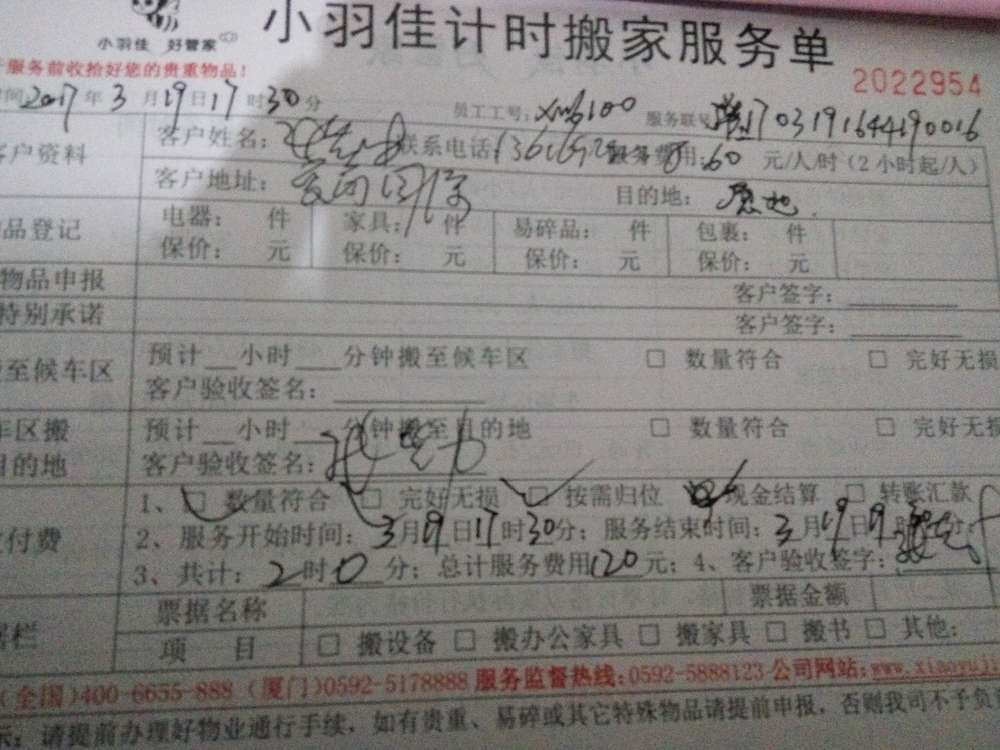 小羽佳 好管家
小羽佳计时搬家服务单
服务前收拾好您的贵重物品！
2022954
2017年3月19日17时30分 员工工号：xm6100 服务联号 1703191644190016
客户资料 客户姓名： 联系电话 服务费用：60元/人/时（2小时起/人）
客户地址： 目的地：原地
品登记 电器： 件 家具： 件 易碎品： 件 包裹： 件
保价： 元 保价： 元 保价： 元 保价： 元
物品申报 客户签字：
特别承诺 客户签字：
至候车区 预计__小时___分钟搬至候车区 □ 数量符合 □ 完好无损
客户验收签名：
车区搬 预计__小时___分钟搬至目的地 □ 数量符合 □ 完好无损
目的地 客户验收签名：
付费 1、□ 数量符合 □ 完好无损 □ 按需归位 □ 现金结算 □ 转账汇款
2、服务开始时间：3月19日17时30分；服务结束时间：3月19日19时
3、共计：2时0分；总计服务费用120元；4、客户验收签字：
据栏 票据名称 票据金额
项 目 □ 搬设备 □ 搬办公家具 □ 搬家具 □ 搬书 □ 其他：
（全国）400-6655-888（厦门）0592-5178888 服务监督热线：0592-5888123 公司网站：www.xiaoyuji
示：请提前办理好物业通行手续，如有贵重、易碎或其它特殊物品请提前申报，否则我司不予负